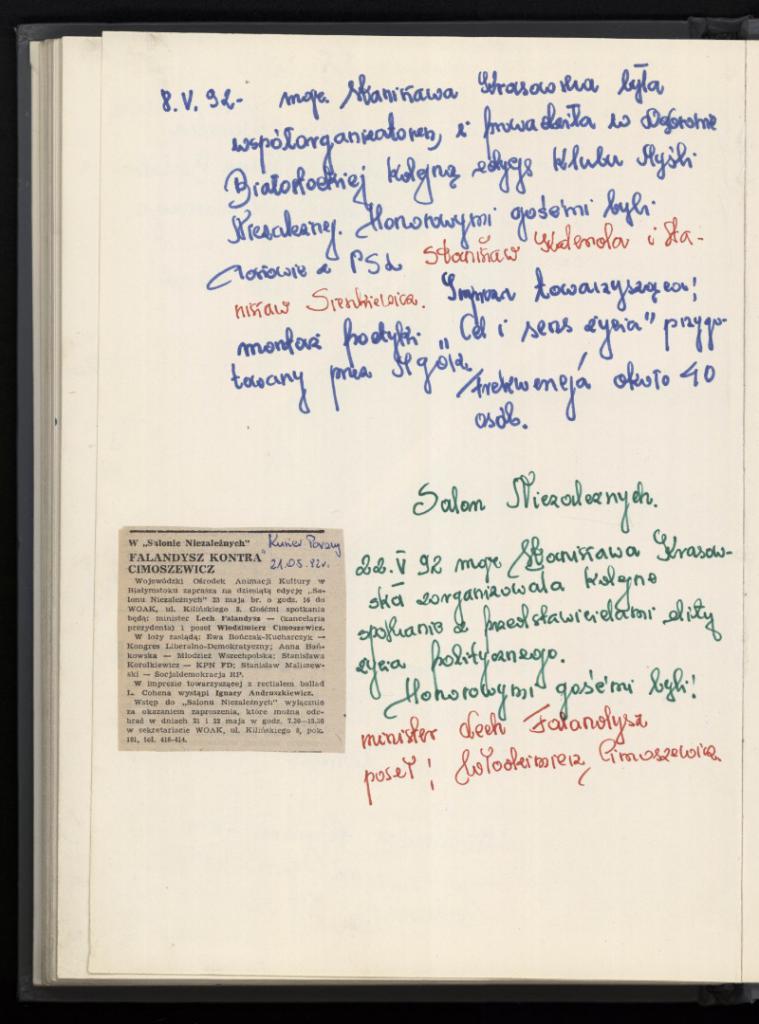 8.V.92- mgr Stanisława Krasowska była
współorganizatorem, i prowadziła w Dąbrowie
Białostockiej kolejną edycję Klubu Myśli
Niezależnej. Honorowymi gośćmi byli
z PSL Stanisław i Sta-
nisław Sienkiewicz. towarzysząca;
montaż poetycki "Cel i sens życia" przygo-
towany przez MGOK.
Frekwencja około 40
osób.
Salon Niezależnych.
22.V 92 mgr Stanisława Krasow-
ska zorganizowała kolejne
spotkanie z przedstawicielami elity
życia politycznego.
Honorowymi gośćmi byli!
minister Lech Falandysz
poseł; Włodzimierz Cimoszewicz
Kurier Poranny
21.05.92r.
W „Salonie Niezależnych"
FALANDYSZ KONTRA
CIMOSZEWICZ
Wojewódzki Ośrodek Animacji Kultury w
Białymstoku zaprasza na dziesiątą edycję „Sa-
lonu Niezależnych" 23 maja br. o godz. 16 do
WOAK, ul. Kilińskiego 8. Gośćmi spotkania
będą: minister Lech Falandysz — (kancelaria
prezydenta) i poseł Włodzimierz Cimoszewicz.
W loży zasiądą: Ewa Bończak-Kucharczyk —
Kongres Liberalno-Demokratyczny; Anna Bań-
kowska — Młodzież Wszechpolska; Stanisława
Korolkiewicz — KPN FD; Stanisław Maliszew-
ski — Socjaldemokracja RP.
W imprezie towarzyszącej z recitalem ballad
L. Cohena wystąpi Ignacy Andruszkiewicz.
Wstęp do „Salonu Niezależnych" wyłącznie
za okazaniem zaproszenia, które można ode-
brać w dniach 21 i 22 maja w godz. 7.30—15.30
w sekretariacie WOAK, ul. Kilińskiego 8, pok.
101, tel. 416-414.